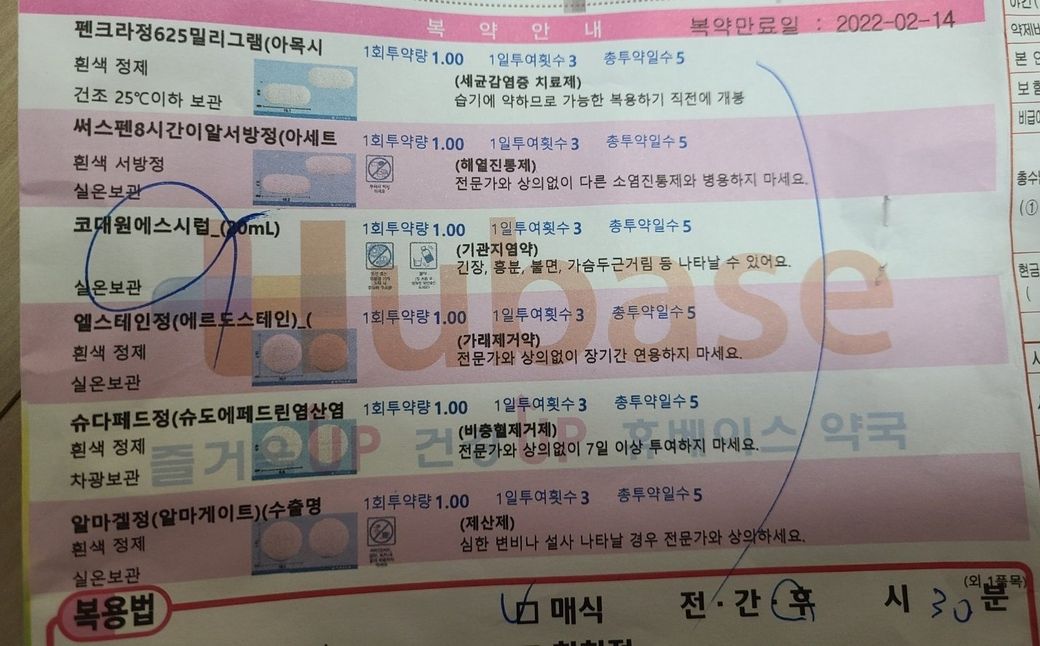 복 약 안 내 복약만료일 : 2022-02-14
펜크라정625밀리그램(아목시 1회투약량 1.00 1일투여횟수 3 총투약일수 5
흰색 정제 (세균감염증 치료제)
건조 25℃이하 보관 습기에 약하므로 가능한 복용하기 직전에 개봉
써스펜8시간이알서방정(아세트 1회투약량 1.00 1일투여횟수 3 총투약일수 5
흰색 서방정 (해열진통제)
실온보관 전문가와 상의없이 다른 소염진통제와 병용하지 마세요.
코대원에스시럽_(20mL) 1회투약량 1.00 1일투여횟수 3 총투약일수 5
(기관지염약)
긴장, 흥분, 불면, 가슴두근거림 등 나타날 수 있어요.
실온보관
Hubase
엘스테인정(에르도스테인)_( 1회투약량 1.00 1일투여횟수 3 총투약일수 5
흰색 정제 (가래제거약)
실온보관 전문가와 상의없이 장기간 연용하지 마세요.
슈다페드정(슈도에페드린염산염 1회투약량 1.00 1일투여횟수 3 총투약일수 5
흰색 정제 (비충혈제거제)
차광보관 전문가와 상의없이 7일 이상 투여하지 마세요.
즐거운UP 건강UP 휴베이스 약국
알마겔정(알마게이트)(수출명 1회투약량 1.00 1일투여횟수 3 총투약일수 5
흰색 정제 (제산제)
실온보관 심한 변비나 설사 나타날 경우 전문가와 상의하세요.
(외 1품목)
복용법 매식 전·간·후 시 30분
약제비
본 인
보험
비급여
총수납
(①
현금
(